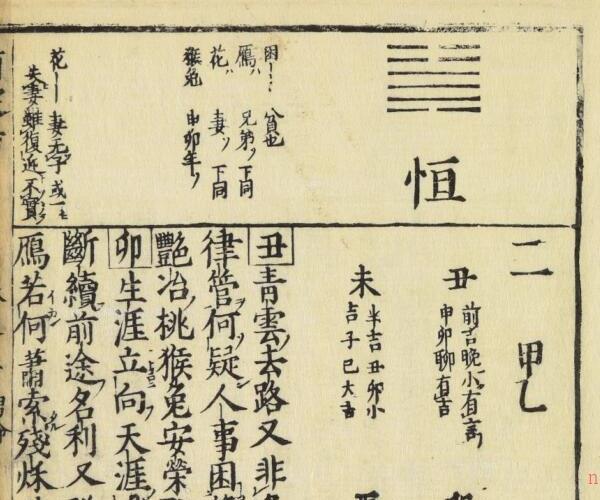 恒
困〡 貧也
鴈ハ 兄弟ノ下同
花ハ 妻ノ下同
猴兔 申卯年ノ
花〡 妻无子或一モ
夫妻雖復近不實
二 甲乙
丑 前吉晚小有吉
申卯聊有吉
未 半吉丑卯小
吉子巳大吉
丑青雲去路又非
律管何疑人事困
艷冶桃猴兔安榮
卯生涯立向天涯
斷續前途名利又
鴈若何蕭索殘烁